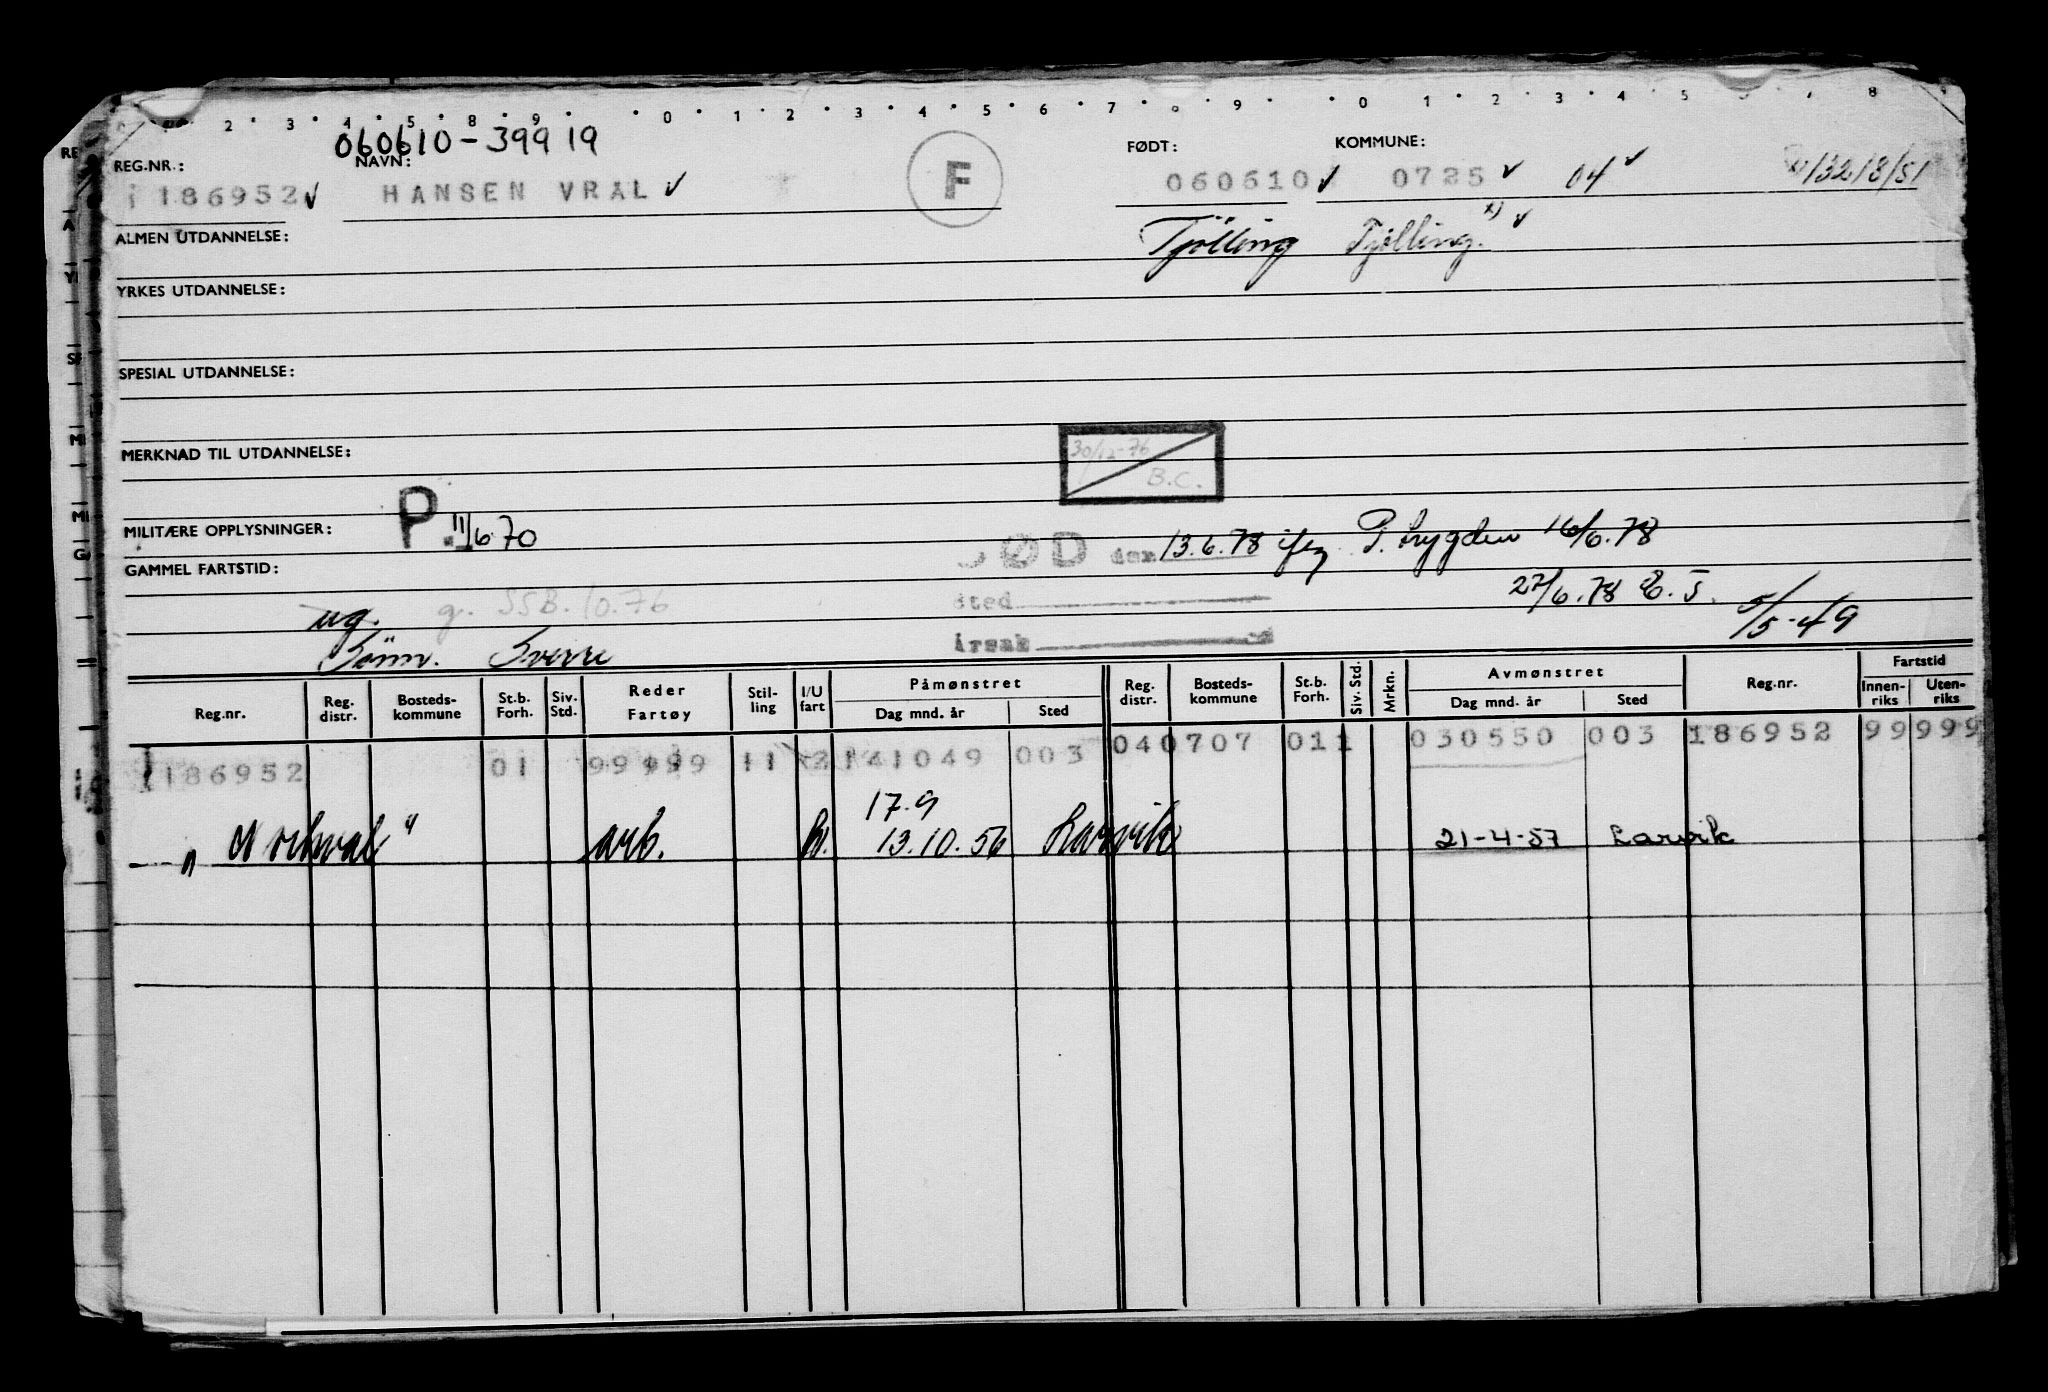 2 3 4 5 8 9 0 1 2 3 4 5 6 7 9 0 1 2 3 4 5 8
060610-39919
REG.NR.: NAVN: FØDT: KOMMUNE:
186952 ✓ HANSEN VRAL ✓ F 060610 ✓ 0725 ✓ 04 ✓ x) 13218/51
ALMEN UTDANNELSE: Tjölling Tjölling. x) ✓
YRKES UTDANNELSE:
SPESIAL UTDANNELSE:
MERKNAD TIL UTDANNELSE: 30/12-76 B.C.
MILITÆRE OPPLYSNINGER: P. 11/6 70
DØD den 13.6.78 ifg. P. trygden 16/6.78
GAMMEL FARTSTID:
sted 27/6.78 E.J.
ug. g. SSB.10.76 5/5-49
årsak
Sönn. Sverre
Reg.nr. Reg. distr. Bosteds-kommune St.b. Forh. Siv. Std. Reder Fartøy Stil-ling I/U fart Påmønstret Dag mnd. år Sted Reg. distr. Bosteds-kommune St.b. Forh. Siv. Std. Mrkn. Avmønstret Dag mnd. år Sted Reg.nr. Fartstid Innen-riks Uten-riks
186952 01 99999 11 2 141049 003 040707 011 030550 003 186952 99 999
17.9
" Norhval " arb. 13.10.56 Larvik 21-4-57 Larvik